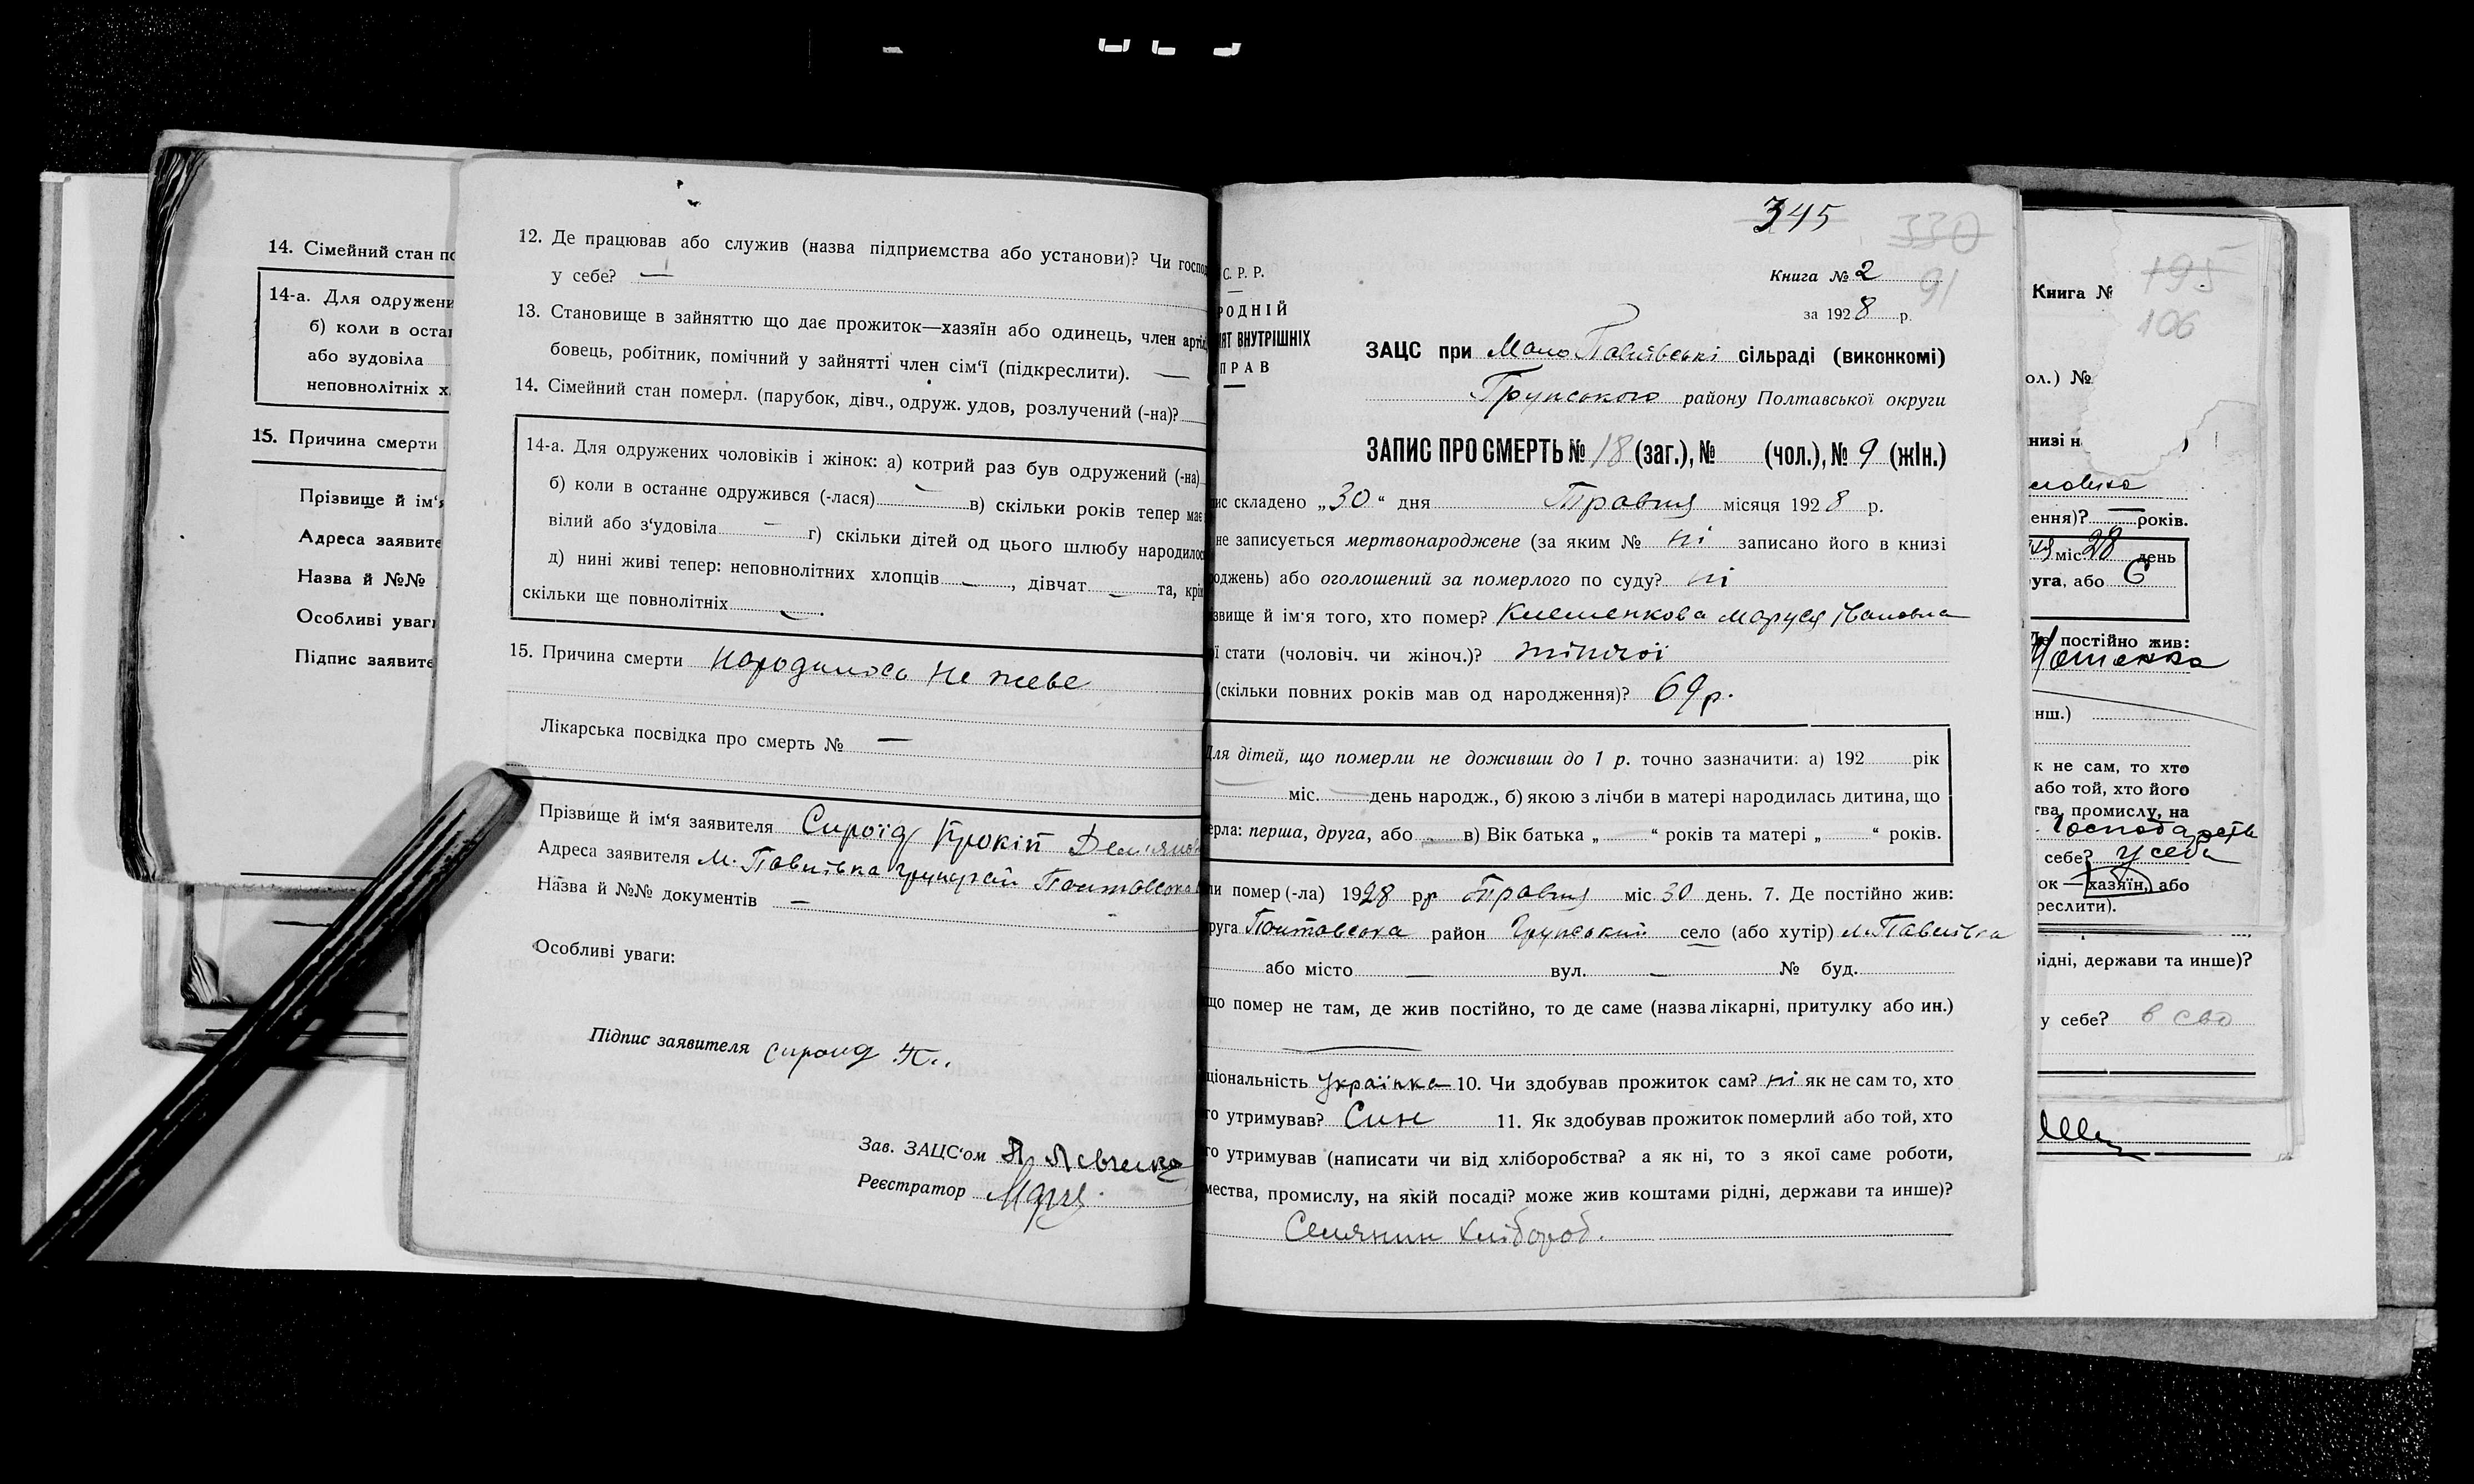 14. Сімейний стан по
14-а. Для одружени
б) коли в оста
або вудовіла
неповнолітніх х
15. Причина смерти
Прізвище й ім'я
Адреса заявите
Назва й №№
Особливі уваги
Підпис заявите
12. Де працював або служив (назва підприємства або установи)? Чи господ
у себе? —
13. Становище в зайняттю що дає прожиток—хазяїн або одинець, член артіл
бовець, робітник, помічний у зайнятті член сім'ї (підкреслити). —
14. Сімейний стан померл. (парубок, дівч., одруж. удов, розлучений (-на)?
14-а. Для одружених чоловіків і жінок: а) котрий раз був одружений (-на)
б) коли в останнє одружився (-лася) — в) скільки років тепер має
вілий або з'удовіла — г) скільки дітей од цього шлюбу народилос
д) нині живі тепер: неповнолітних хлопців —, дівчат — та, крім
скільки ще повнолітніх —.
15. Причина смерти Народилось не живе
Лікарська посвідка про смерть № —
Прізвище й ім'я заявителя Сироїд Прокіп Дем'янов
Адреса заявителя М. Павлівка Грунсрай Полтавська
Назва й №№ документів —
Особливі уваги:
Підпис заявителя Сироид П..
Зав. ЗАЦС'ом Левченко
Реєстратор
345
330
С. Р. Р.
Книга № 2
91
РОДНІЙ
за 1928 р.
ЯТ ВНУТРІШНІХ
ПРАВ
ЗАЦС при Мало Павлівські сільраді (виконкомі)
Грунського району Полтавської округи
ЗАПИС ПРО СМЕРТЬ № 18 (заг.), № (чол.), № 9 (жін.)
ис складено „30“ дня Травня місяця 1928 р.
не записується мертвонароджене (за яким № ні записано його в книзі
роджень) або оголошений за померлого по суду? ні
звище й ім'я того, хто помер? Клеменкова Маруся Івановна
ї стати (чоловіч. чи жіноч.)? жіночої
(скільки повних років мав од народження)? 69 р.
Для дітей, що померли не доживши до 1 р. точно зазначити: а) 192 рік
— міс. — день народж., б) якою з лічби в матері народилась дитина, що
ерла: перша, друга, або — в) Вік батька „ — “ років та матері „ — “ років.
ли помер (-ла) 1928 рр Травня міс 30 день. 7. Де постійно жив:
руга Полтавська район Грунський село (або хутір) М. Павлівка
або місто — вул. — № буд.
що помер не там, де жив постійно, то де саме (назва лікарні, притулку або ин.)
—
ціональність Українка 10. Чи здобував прожиток сам? ні як не сам то, хто
го утримував? Син 11. Як здобував прожиток померлий або той, хто
го утримував (написати чи від хліборобства? а як ні, то з якої саме роботи,
мества, промислу, на якій посаді? може жив коштами рідні, держави та инше)?
Селянин хлібороб.
Книга №
195
106
ол.) №
низі н
ення)? — років.
міс 28 день
уга, або 6
Де постійно жив:
нш.)
к не сам, то хто
або той, хто його
тва, промислу, на
себе? у себе
ок — хазяїн, або
реслити).
рідні, держави та инше)?
у себе? в сво